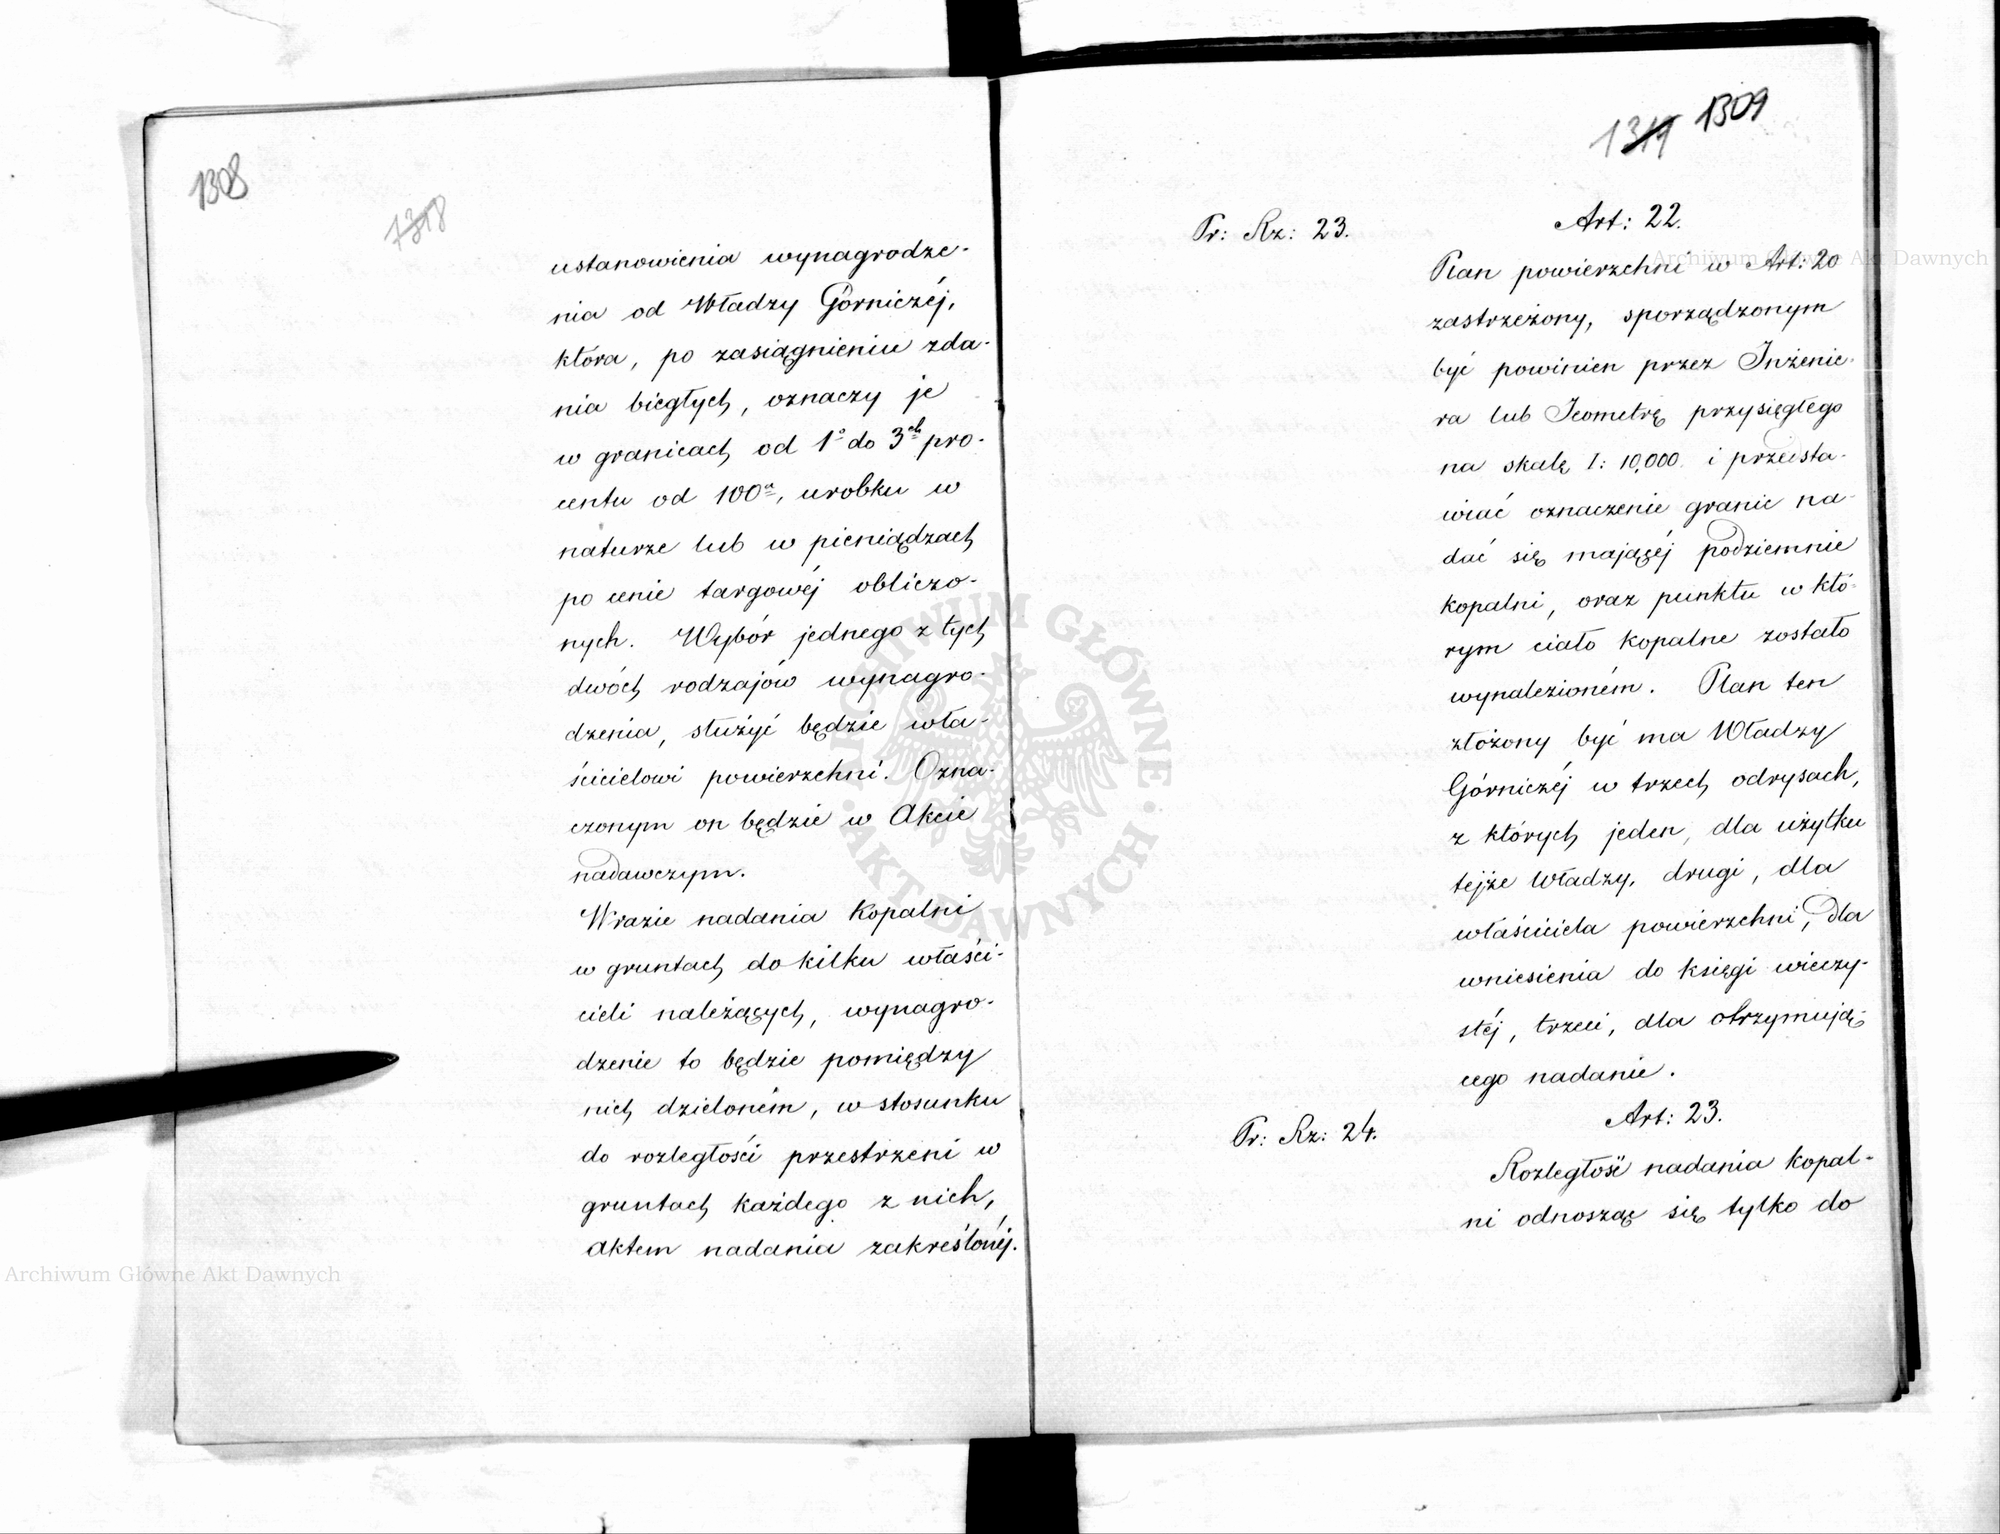 1308
ustanowienia wynagrodze-
nia od Władzy Górniczéj,
która, po zasiągnieniu zda-
nia biegłych, oznaczy je
w granicach od 1° do 3ch pro-
centu od 100a, urobku w
naturze lub w pieniądzach
po cenie targowéj obliczo-
nych. Wybór jednego z tych
dwóch rodzajów wynagro-
dzenia, służyć będzie wła-
ścicielowi powierzchni. Ozna-
czonym on będzie w Akcie
nadawczym.
W razie nadania Kopalni
w gruntach do kilku właści-
cieli należących, wynagro-
dzenie to będzie pomiędzy
nich dzieloném, w stosunku
do rozległości przestrzeni w
gruntach każdego z nich,
aktem nadania zakreślonéj.
1309
Pr: Rz: 23.
Art: 22.
Plan powierzchni w Art: 20
zastrzeżony, sporządzonym
być powinien przez Inżenie-
ra lub Jeometrę przysięgłego
na skalę 1: 10,000 i przedsta-
wiać oznaczenie granic na-
dać się mającéj podziemnie
kopalni, oraz punktu w któ-
rym ciało kopalne zostało
wynalezioném. Plan ten
złożony być ma Władzy
Górniczéj w trzech odrysach,
z których jeden, dla użytku
tejże Władzy, drugi, dla
właściciela powierzchni, dla
wniesienia do księgi wieczy-
stéj, trzeci, dla otrzymują-
cego nadanie.
Pr: Rz: 24.
Art: 23.
Rozległość nadania kopal-
ni odnosząc się tylko do
Archiwum Główne Akt Dawnych
Archiwum Główne Akt Dawnych
ARCHIWUM GŁÓWNE · AKT DAWNYCH ·